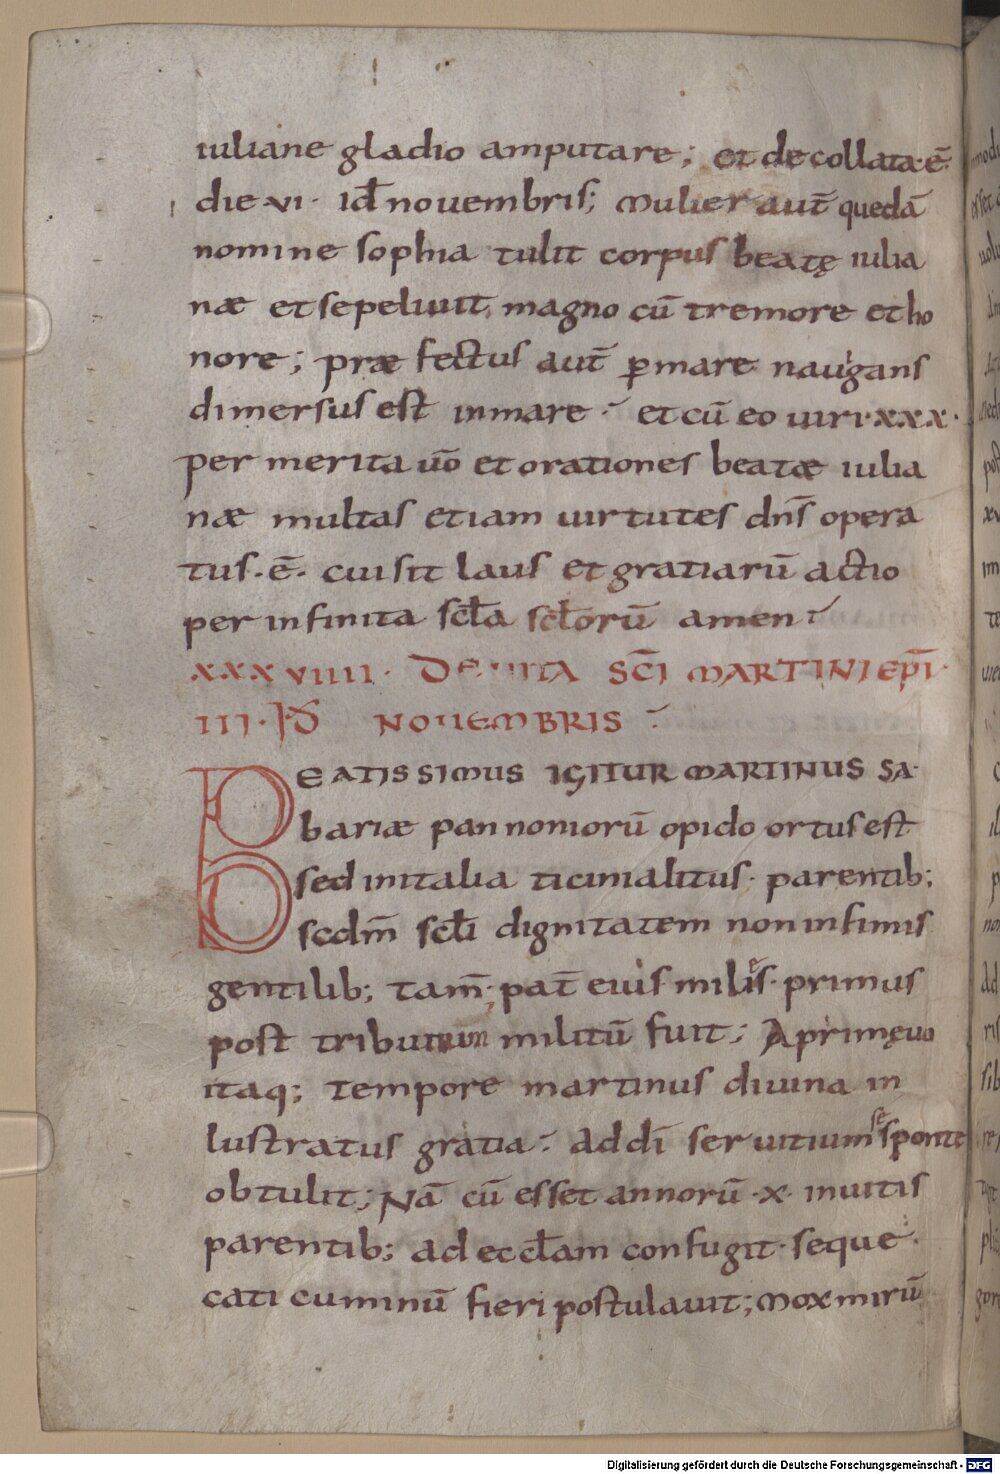 iuliane gladio amputare; et decollata·ē·
die vi· id̄ nouembris; Mulier aut̄ quedā
nomine sophia tulit corpus beatę iulia
næ et sepeliuit, magno cū tremore et ho
nore; præfectus aut̄ p̱ mare nauigans
dimersus est in mare· et cū eo uiri·xxx·
per merita ūo et orationes beatæ iulia
næ multas etiam uirtutes dn̄s opera
tus·ē· cui sit laus et gratiarū actio
per infinita sc̄la sc̄lorū amen·
xxxviiii· DE VITA SC̄I MARTINI EP̄I·
III·ID̄ NOUEMBRIS
BEATISSIMUS IGITUR MARTINUS SA·
bariæ pannoniorū opido ortus est
sed in italia ticini alitus· parentib;
scdm̄ scl̄i dignitatem non infimis
gentilib; tam̄· pat̄ eius miles· primus
post tribunum militū fuit; A primęuo
itaq; tempore martinus diuina in
lustratus gratia· ad dī seruitium se sponte
obtulit; Nā cū esset annorū·x· inuitis
parentib; ad eccl̄am confugit· seque
cati cuminū fieri postulauit; Mox mirū
Digitalisierung gefördert durch die Deutsche Forschungsgemeinschaft - DFG